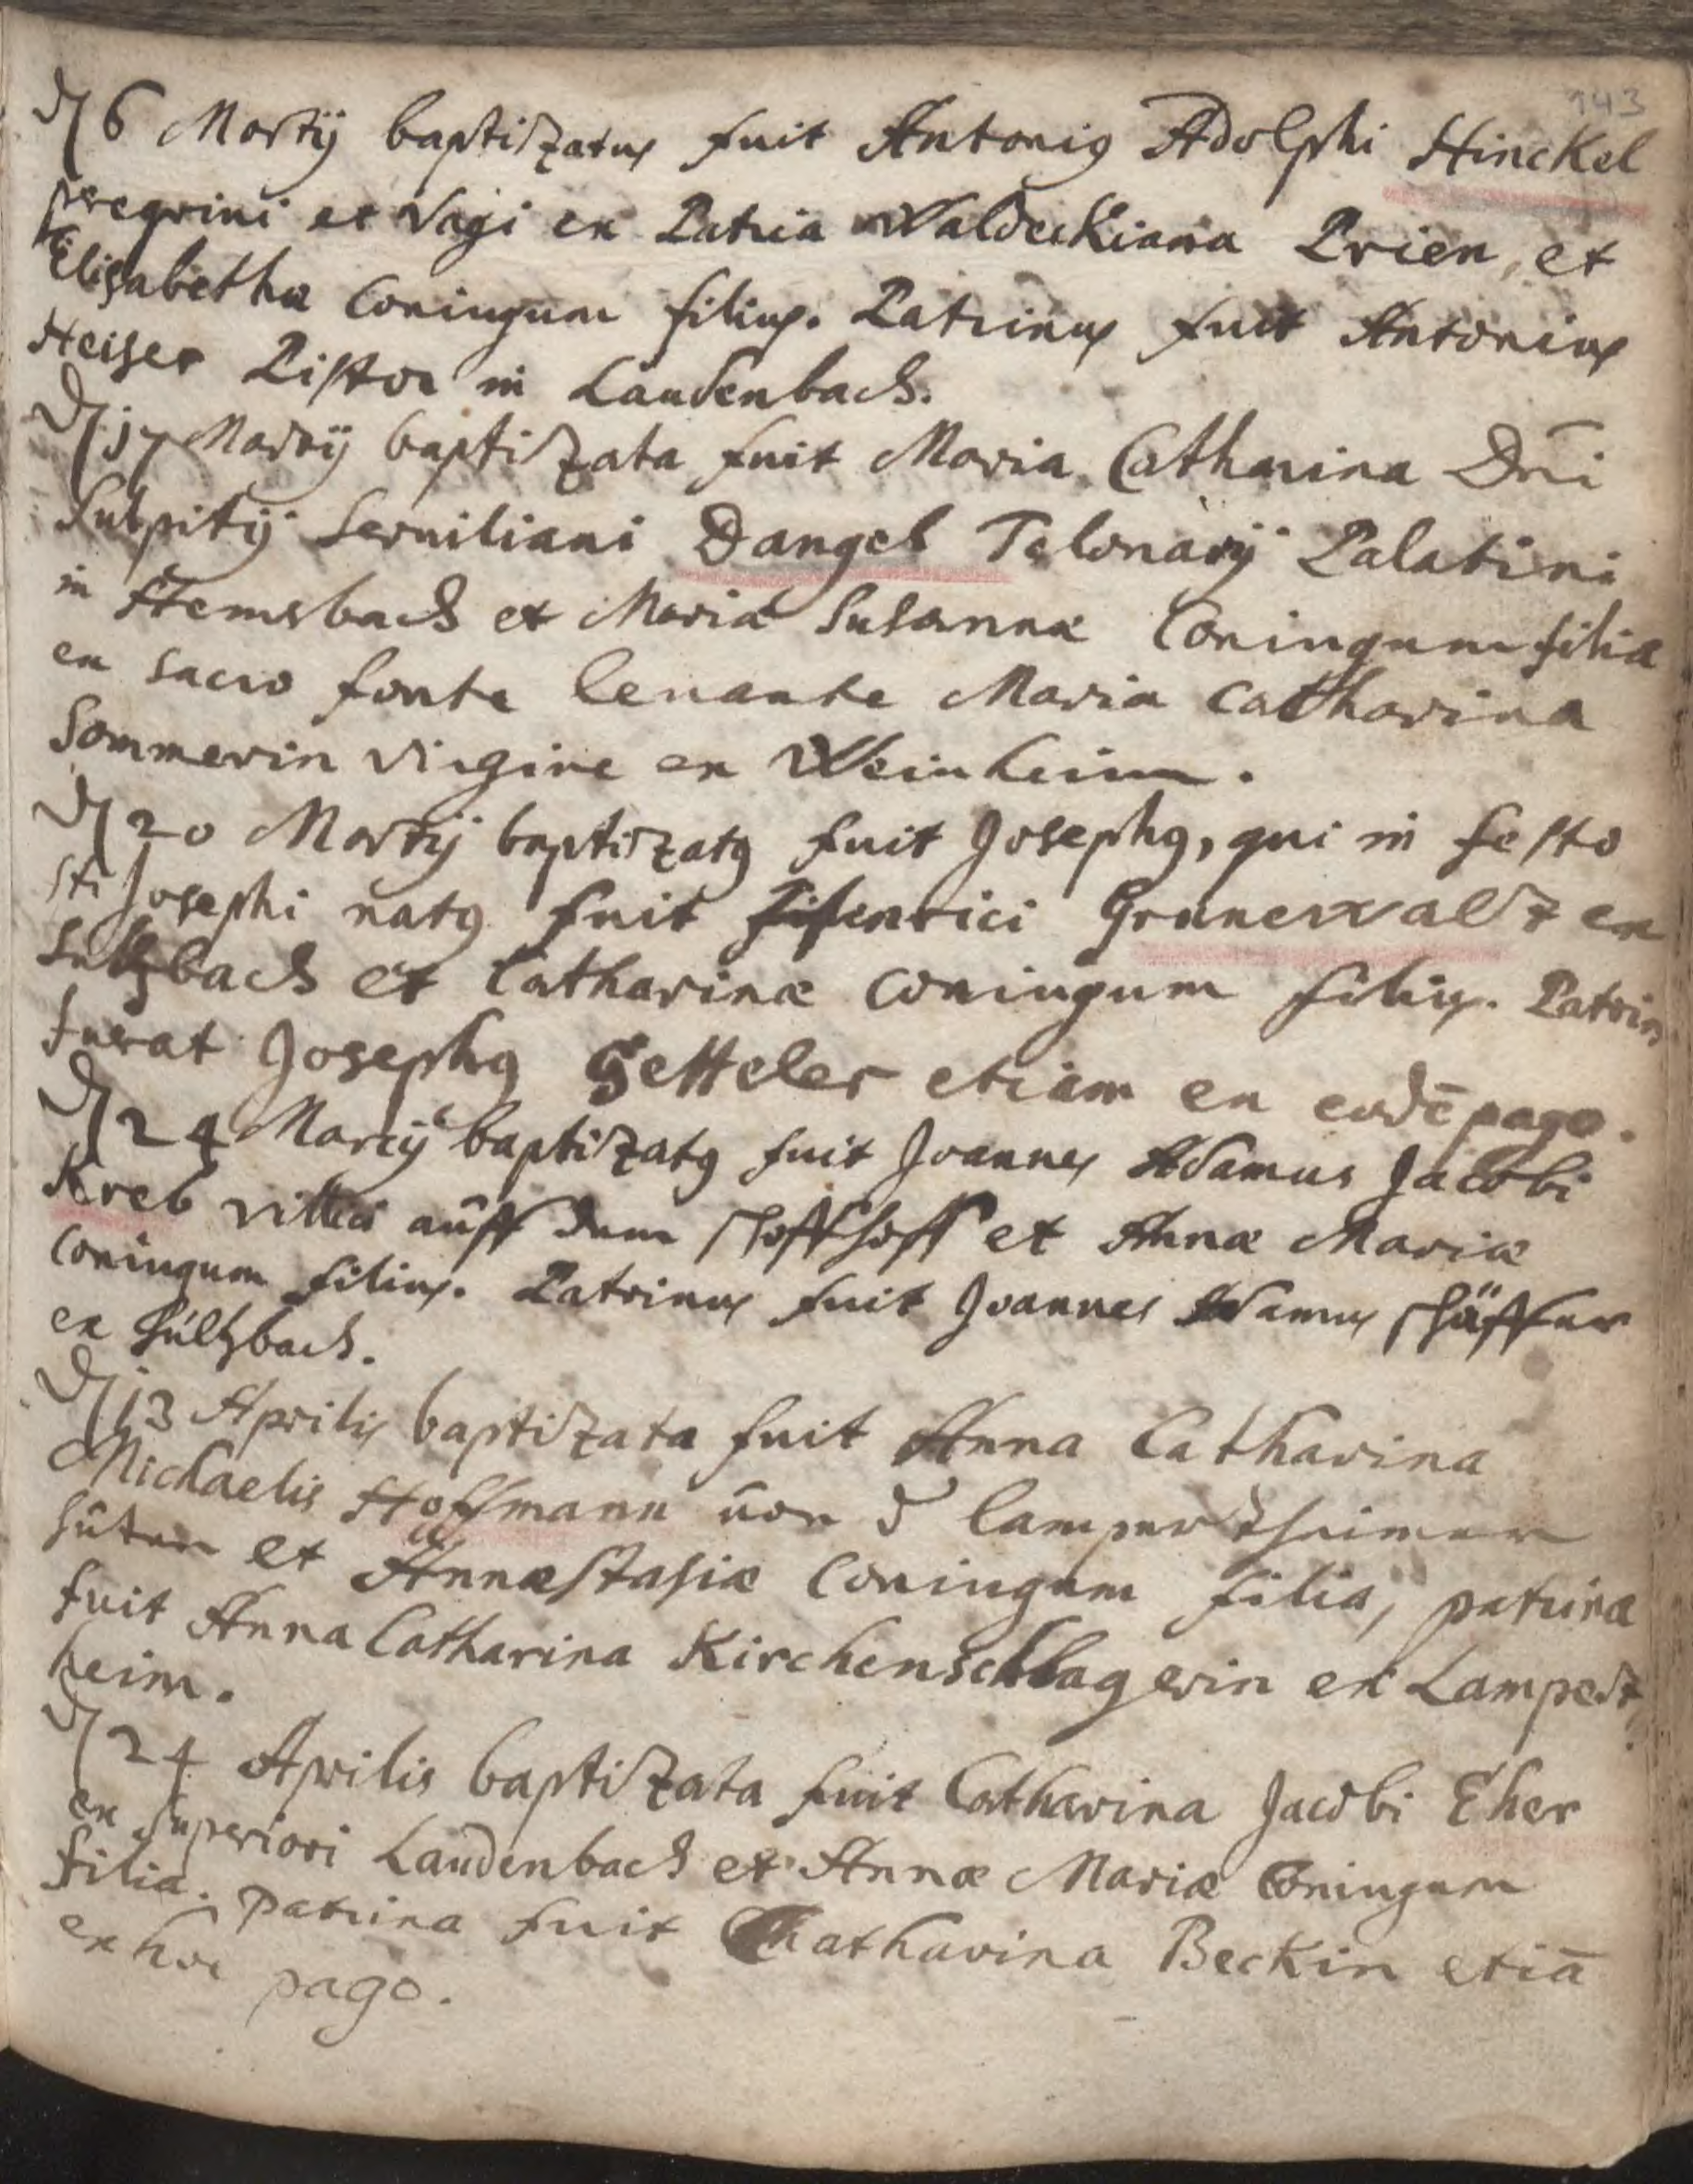 143
6 Martij baptizatus fuit Antonig Adolphi Hinckel
peregrini et vagi ex Patria Waldeckiana Prien, et
Elisabethæ Coniugum filius. Patrinus fuit Antonius
Heiser Pistor in Laudenbach.
17 Martij baptizata fuit Maria Catharina Dni
Sulpitij Serviliani Dangel Telonarij Palatini
in Hemsbach et Mariæ Susannæ Coniugum filia
ex sacro fonte levante Maria Catharina
Sommerin virgine ex Weinheim.
20 Martij baptizatg fuit Josephg, qui in festo
sti Josephi natg fuit Grunewaldt ex
Sultzbach et Catharinæ coniugum filius. Patrin
fuerat Josephg Setteler etiam ex eodē pago.
24 Martij baptizatg fuit Joannes Adamus Jacobi
Kreb villici auff dem et Annæ Mariæ
coniugum filius. Patrinus fuit Joannes Adamus Schäffer
ex Sultzbach.
13 Aprilis baptizata fuit Anna Catharina
Michaelis Hoffmann von d lampertheimer
hüten et Annæstasiæ Coniugum filia, patrina
fuit Anna Catharina Kirchenschlagerin ex Lampert
heim.
24 Aprilis baptizata fuit Catharina Jacobi Eher
ex superiori Laudenbach et Annæ Mariæ Coniugum
filia. patrina fuit Chatharina Beckin etiā
ex hoc pago.